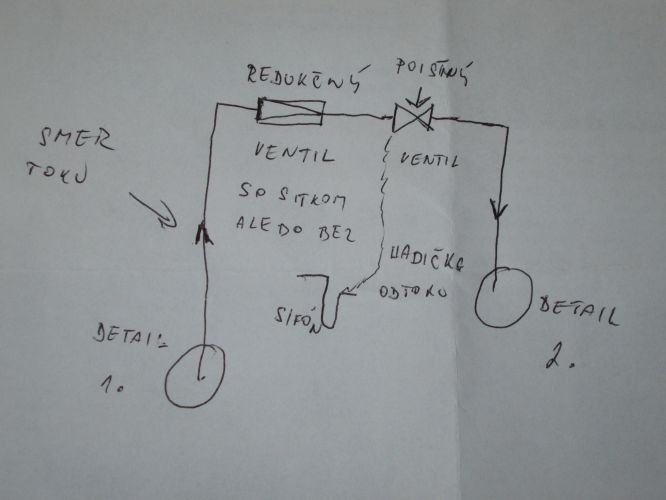 REDUKČNÝ
POISTNÝ
SMER
TOKU
VENTIL
VENTIL
SO SITKOM
ALEDO BEZ
HADIČKA
ODTOKU
SIFÓN
DETAIL
1.
DETAIL
2.